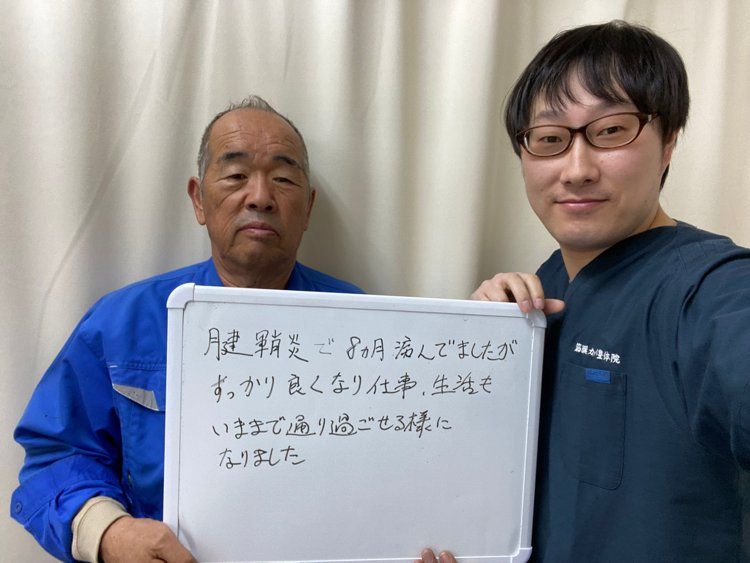 腱鞘炎で8ヵ月病んでましたが
すっかり良くなり仕事、生活も
いままで通り過ごせる様に
なりました
筋膜 整体院